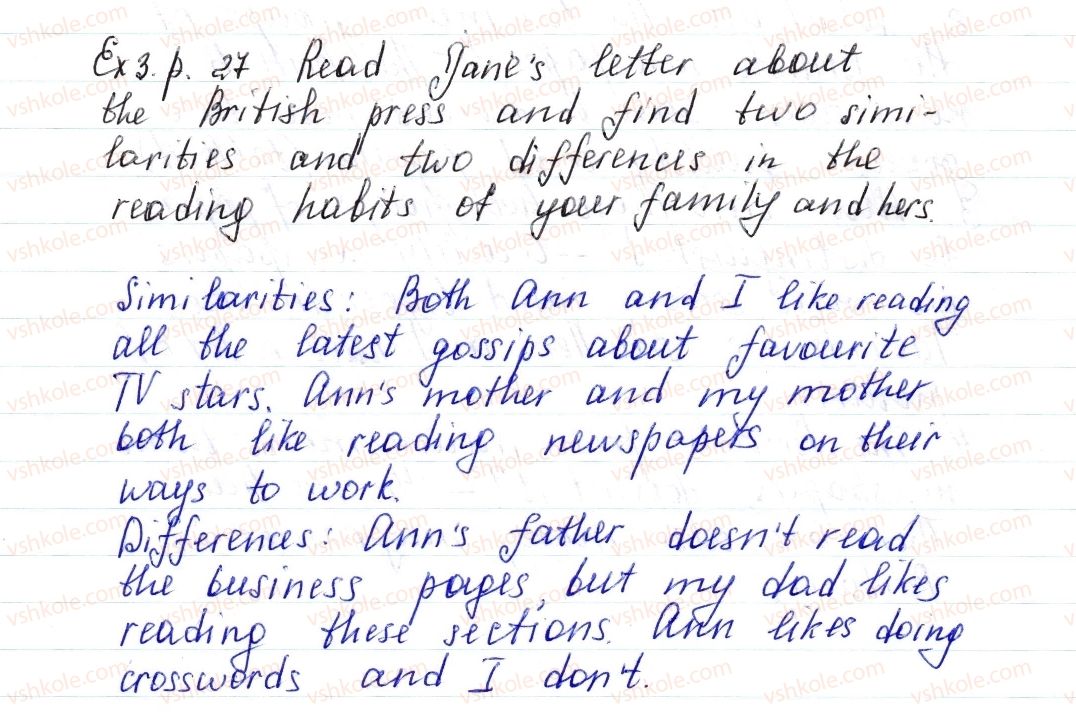 Ex 3. p. 27 Read Jane's letter about
the British press and find two simi-
larities and two differences in the
reading habits of your family and hers.
Similarities: Both Ann and I like reading
all the latest gossips about favourite
TV stars. Ann's mother and my mother
both like reading newspapers on their
ways to work.
Differences: Ann's father doesn't read
the business pages, but my dad likes
reading these sections. Ann likes doing
crosswords and I don't.